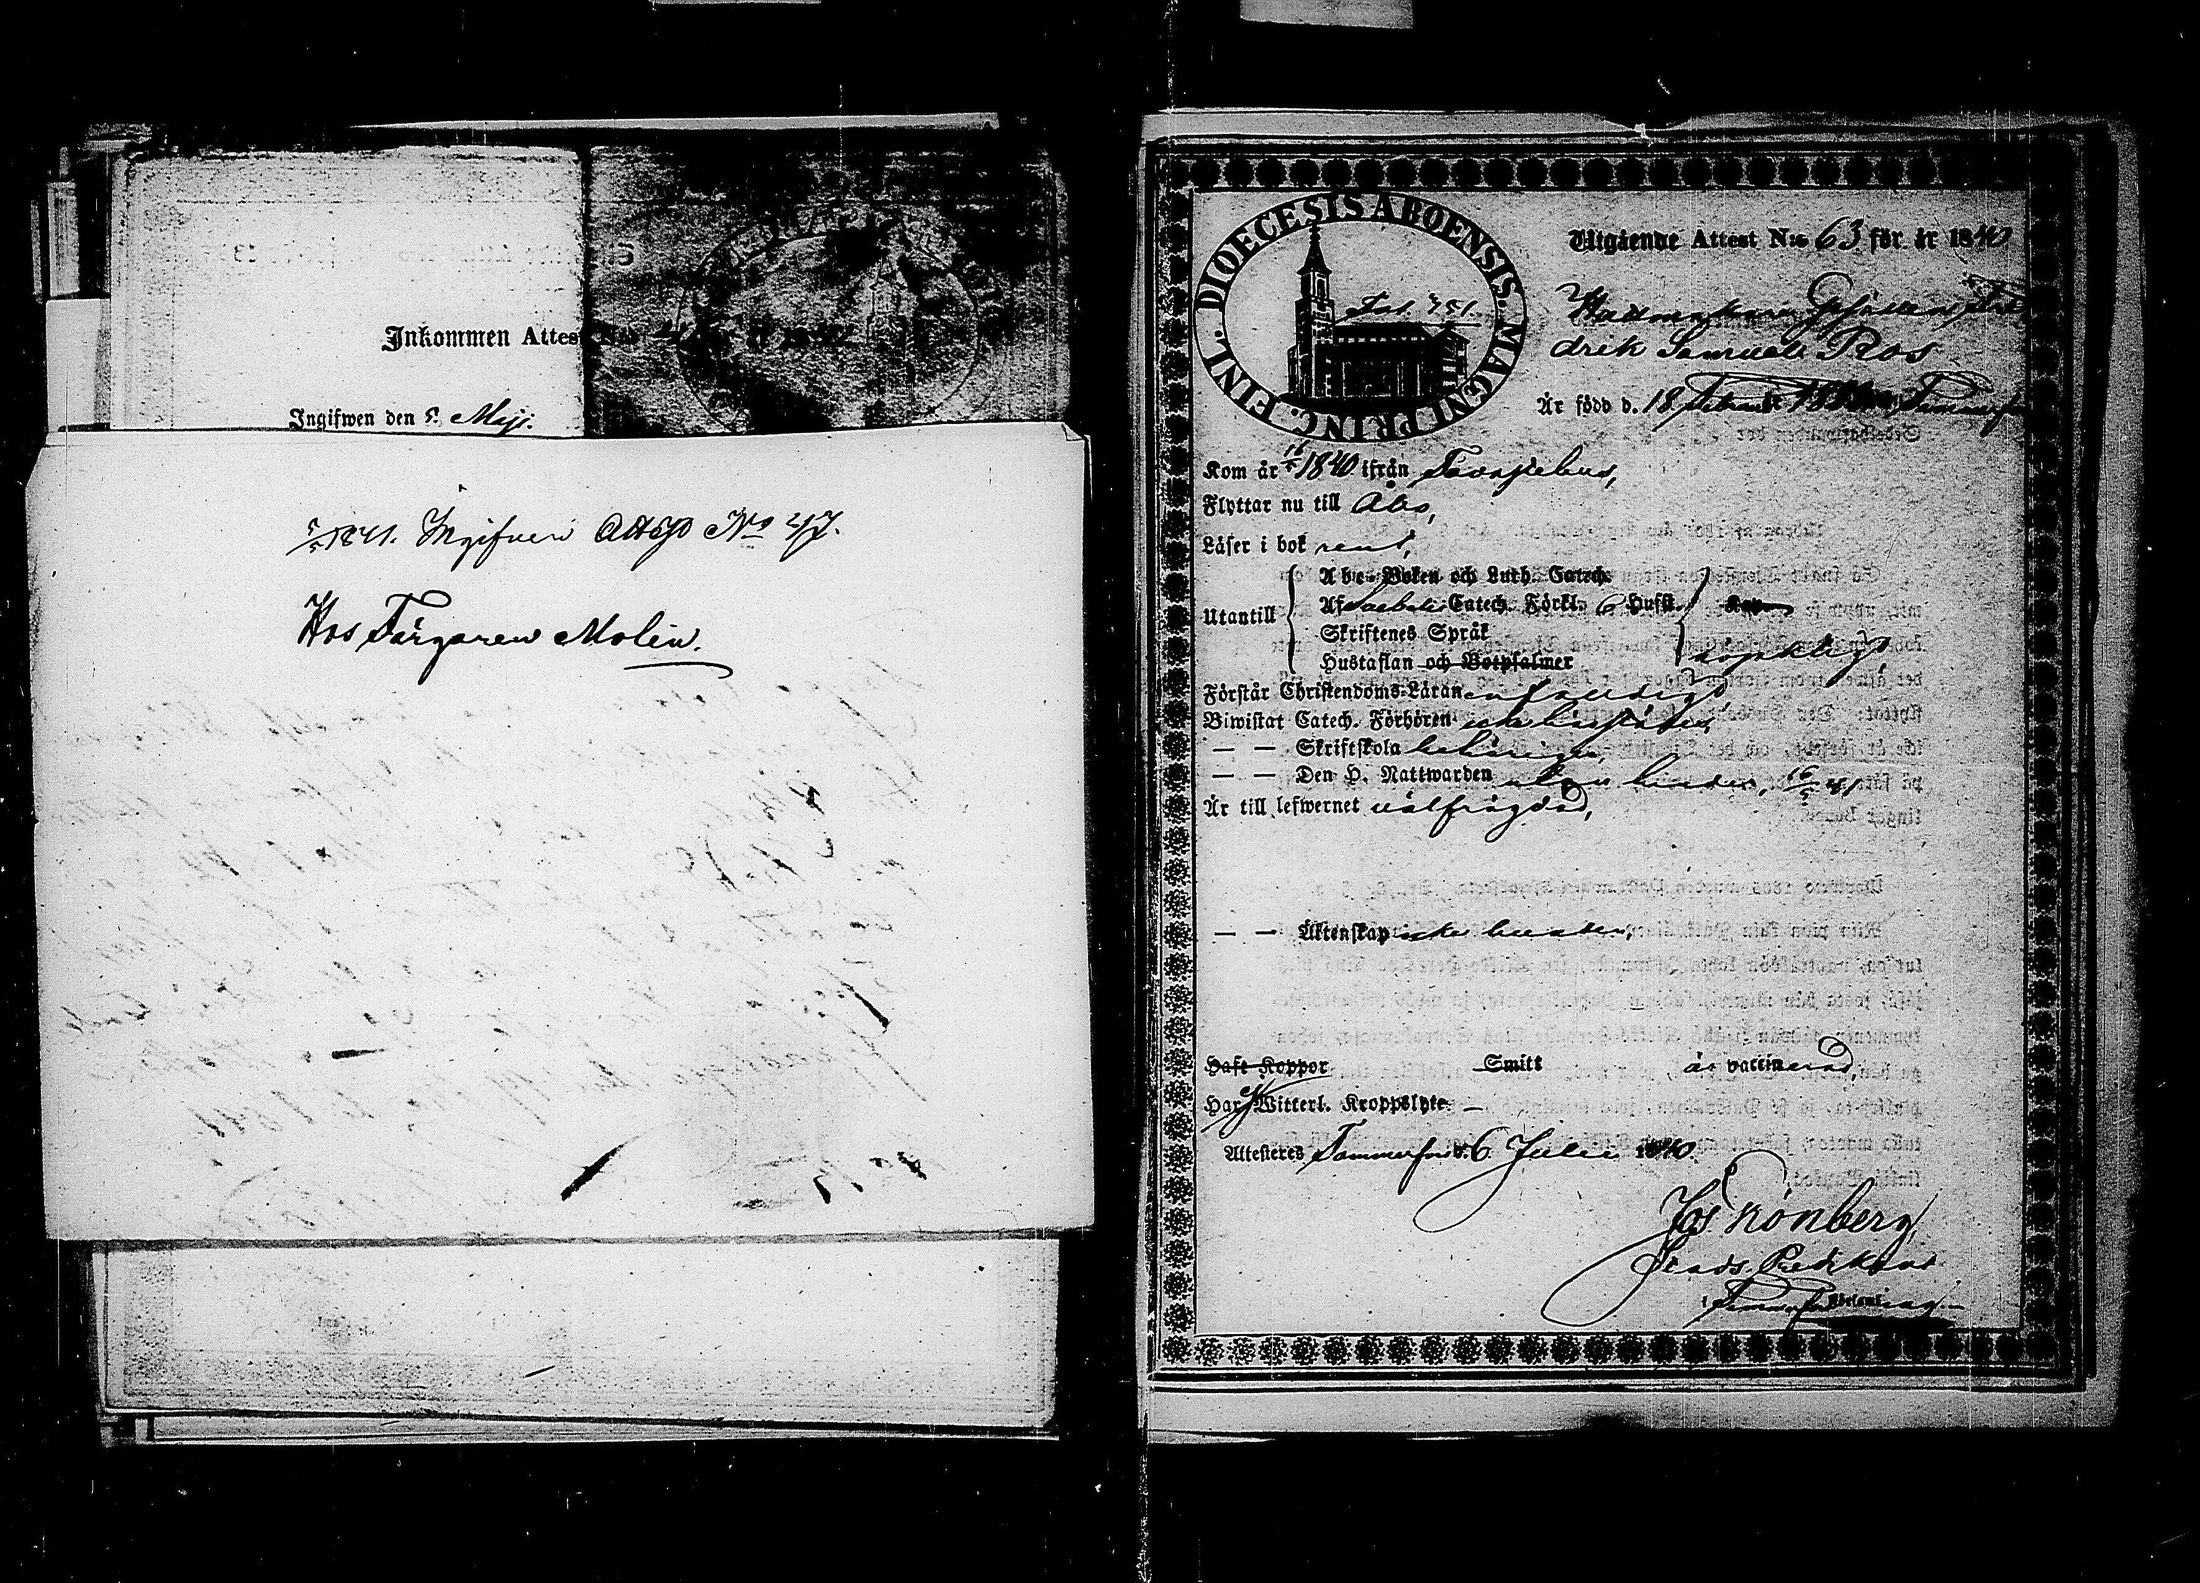 Inkommen Attest N:o
Ingifwen den 5. Maji.
5/5 1841. Ingifven Attest No 47.
Hos Färgaren Molin.
FINL. DIOECESIS ABOENSIS. MAGNI PRINC.
Fol. 751.
Utgående Attest N:o 63 för år 1840
Hattmakare Gesällen Fre
drik Samuel Ros
Är född d. 18 Februari
Kom år 1840 ifrån Tavastehus,
Flyttar nu till Åbo,
Läser i bok rent,
Utantill
Abc-Boken och Luth. Catech.
Af Svebelii Catech. Förkl. 6 Hufst.
Skriftenes Språk
Hustaflan och Botpsalmer
nöjaktigt
Förstår Christendoms-Läran enfaldigt
Biwistat Catech. Förhören
— — Skriftskola behörigen,
— — Den H. Nattwarden utan hinder,
Är till lefwernet välfrägdad,
— — Äktenskap icke bunden,
Haft Koppor Smitt är vaccinerad,
Har ej Witterl. Kroppslyte —
Attesteras Tammerfors d. 6 Julii 1840.
Jos. Grönberg
Stads Predikant
i Tammerfors